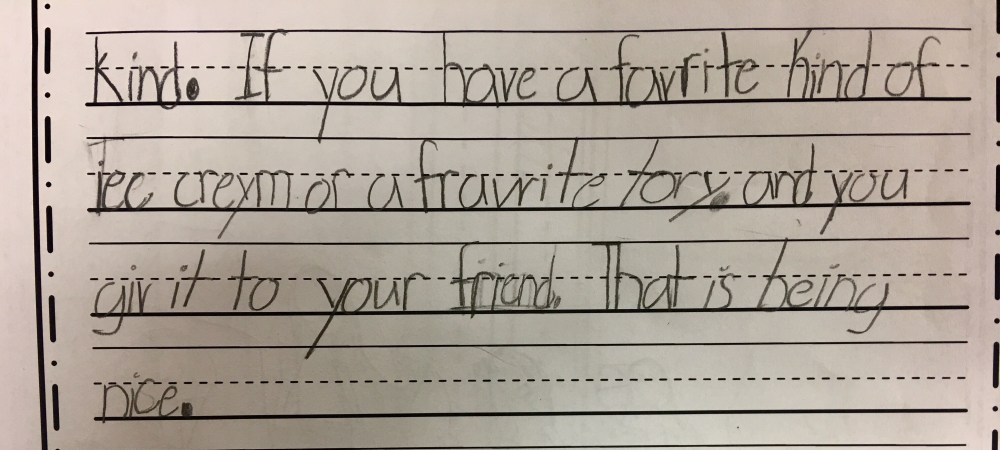 Kind. If you have a favrite kind of
iec creym or a fravrite tory. and you
giv it to your friend. That is being
nice.